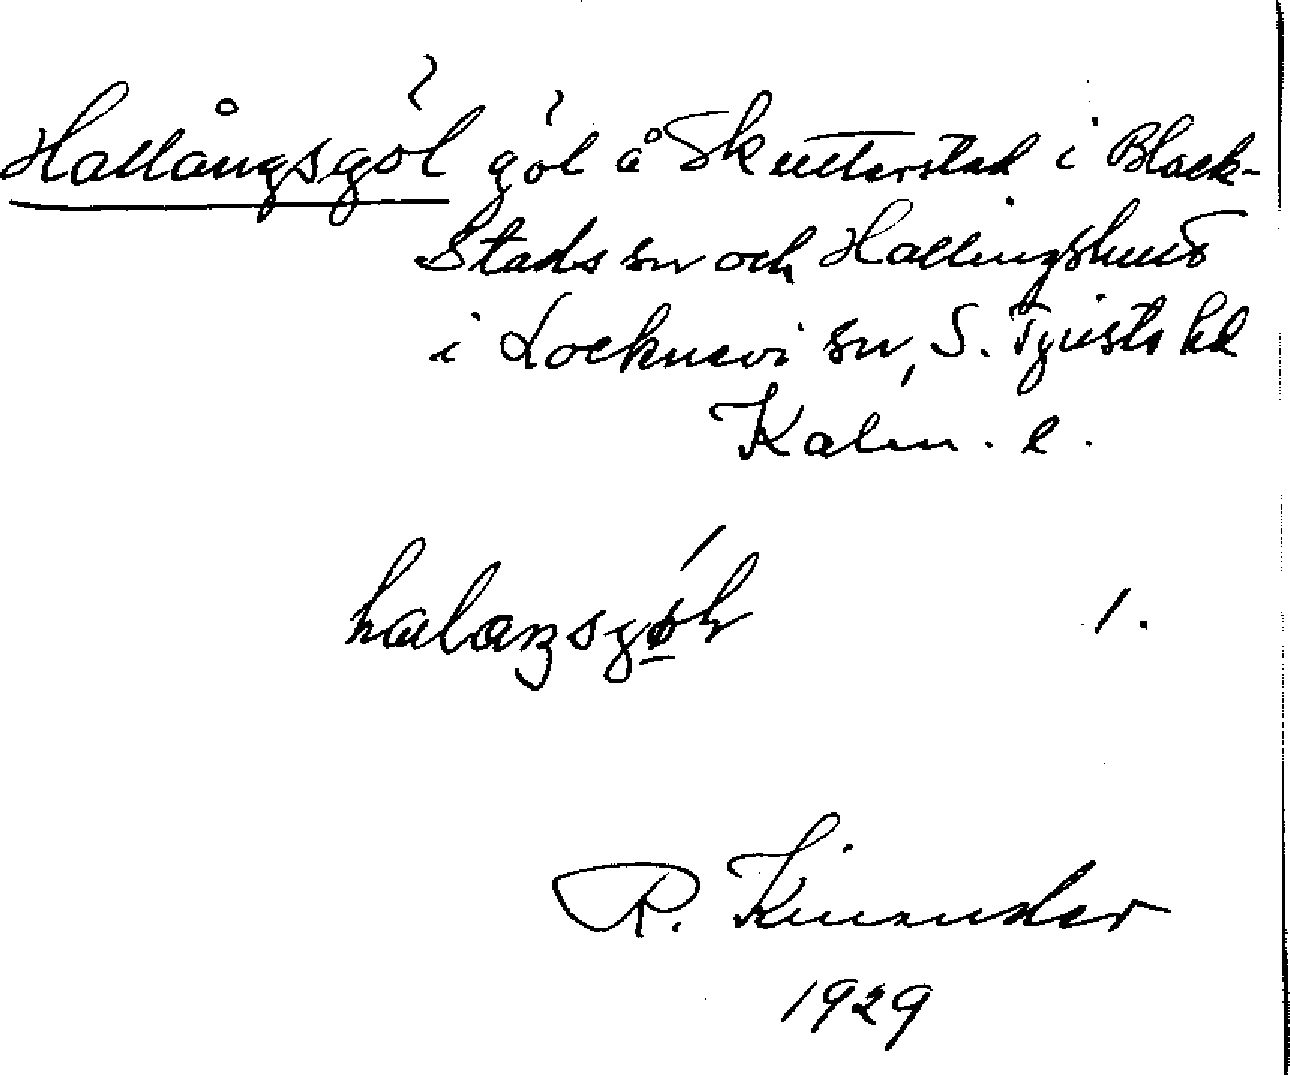 Hallångsgöl göl å Skutterstad i Black-
stads sn och Hallingshult
i Locknevi sn, S. Tjusts hd
Kalm. l.
halaŋsgø̱l 1.
R. Kinander
1929